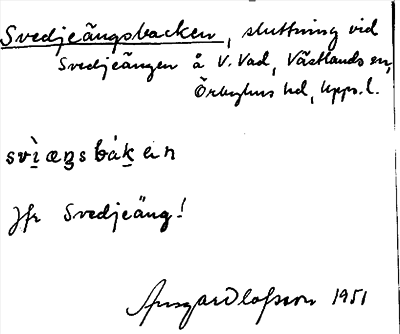 Svedjeängsbacken, sluttning vid
Svedjeängen å V. Vad, Västlands sn,
Örbyhus hd, Upps. l.
svìæŋsbákən
Jfr Svedjeäng!
Olofsson 1951